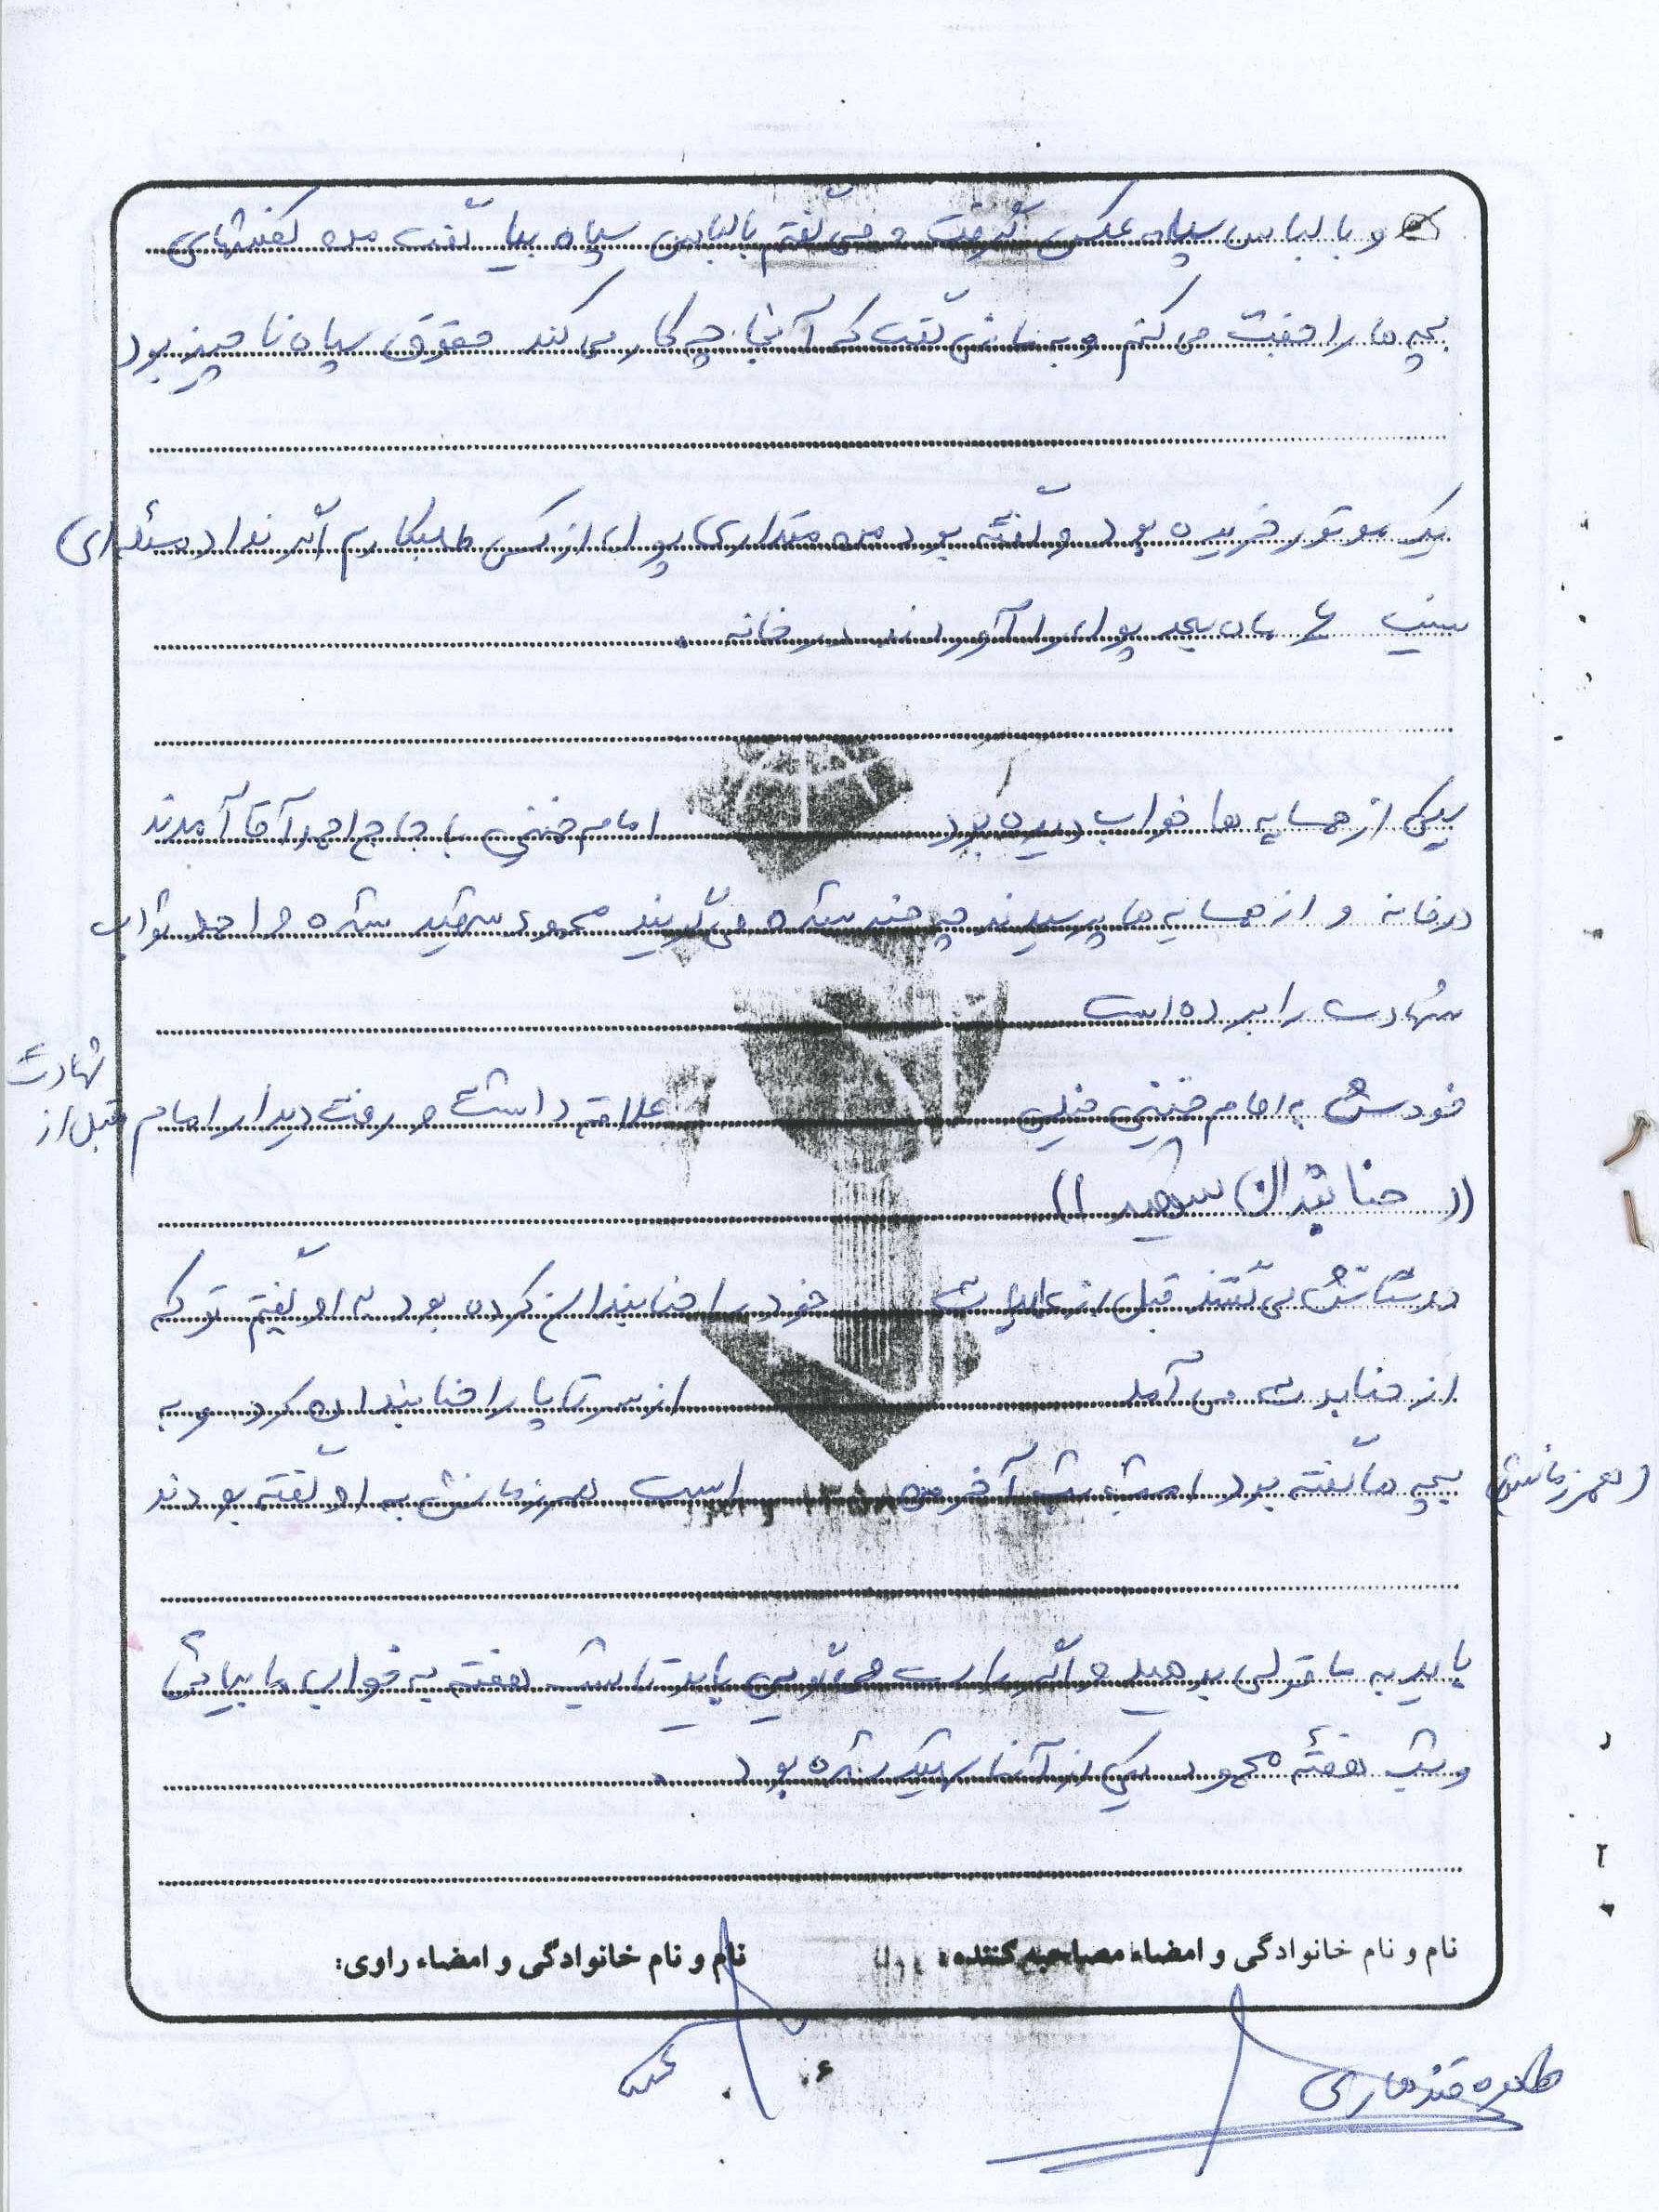 و با لباس سپاه عکس گرفت و می گفتم با لباس سپاه بیا گفت من کفشهای
بچه ها را جفت می کنم و به ما نمی گفت که آنجا چه کار می کند حقوق سپاه ناچیز بود
یک موتور خریده بود و گفته بود من مقداری پول از کسی طلبکارم اگر نداد مسئله ای
نیست ۶ ماه بعد پول را آوردند در خانه .
یکی از همسایه ها خواب دیده بود امام خمینی با حاج احمد آقا آمدند
در خانه و از همسایه ها پرسیدند چه خبر شده می گویند محمود شهید شده و احمد ثواب
شهادت را برده است
خودش به امام خمینی خیلی علاقه داشت و رفت دیدار امام قبل از
شهادت
(( حنا بندان شهید ))
دوستانش می گفتند قبل از عملیات خود را حنابندان کرده بود به او گفتیم تو که
از حنا بدت می آمد از سر تا پا را حنا بندان کرد و به
(همرزمانش) بچه ها گفته بود امشب شب آخر من است همرزمانش به او گفته بودند
باید به ما قولی بدهید و اگر راست می گویی باید تا شب هفته به خواب ما بیائی
و شب هفته محمود یکی از آنها شهید شده بود .
نام و نام خانوادگی و امضاء مصاحبه کننده: نام و نام خانوادگی و امضاء راوی:
طاهره قندهاری
۶